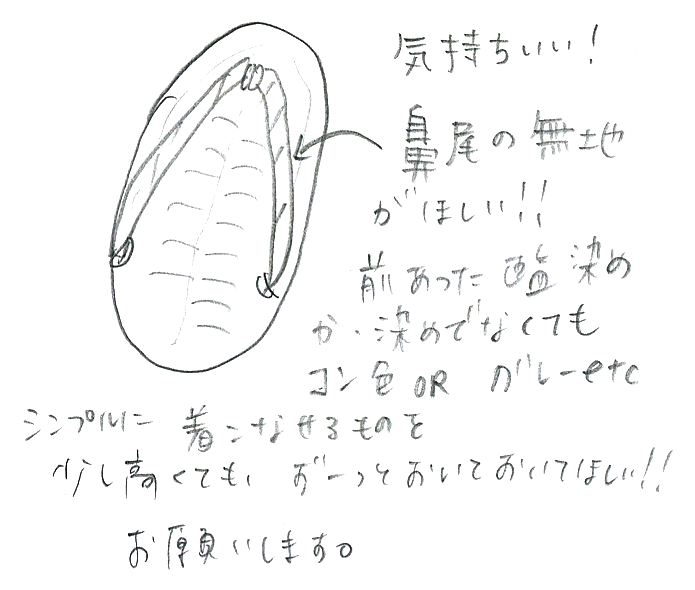 気持ちいい!
鼻尾の無地
がほしい!!
前あった 染め
か・染めでなくても
コン色 OR グレーetc
シンプルに 着こなせるものを
少し高くても、ずーっとおいておいてほしい!!
お願いします。